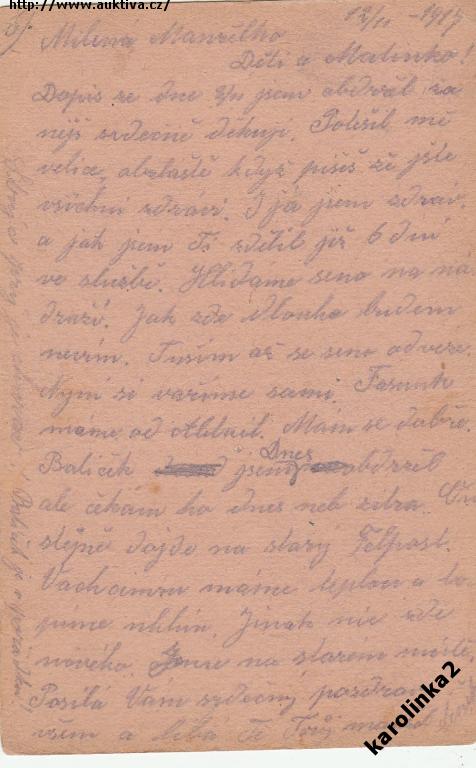 http://www.auktiva.cz/
12/11 -1917
Milená Manželko
Děti a Maminko!
Dopis ze dne 8/11 jsem obdržel za
nějž srdečně děkuji. Potěšil mě
velice, obzlaště když píšeš že jste
všichni zdrávi. I já jsem zdráv.
a jak jsem Ti sdělil již 6 dní
ve službě. Hlídáme seno na ná
draží. Jak zde dlouho budem
nevím. Tuším až se seno odveze.
Nyní si vaříme sami. Fasunk
máme od Máme se dobře.
Balíček jsem Dnes obdržel
ale čekám ho dnes neb zítra.
stejně dojde na starý Felpost.
Vachcimru máme teplou a to
píme uhlím. Jinak nic zde
nového. na starém místě.
Posílá Vám srdečný pozdrav
všem a líbá Tě Tvůj
karolinka2